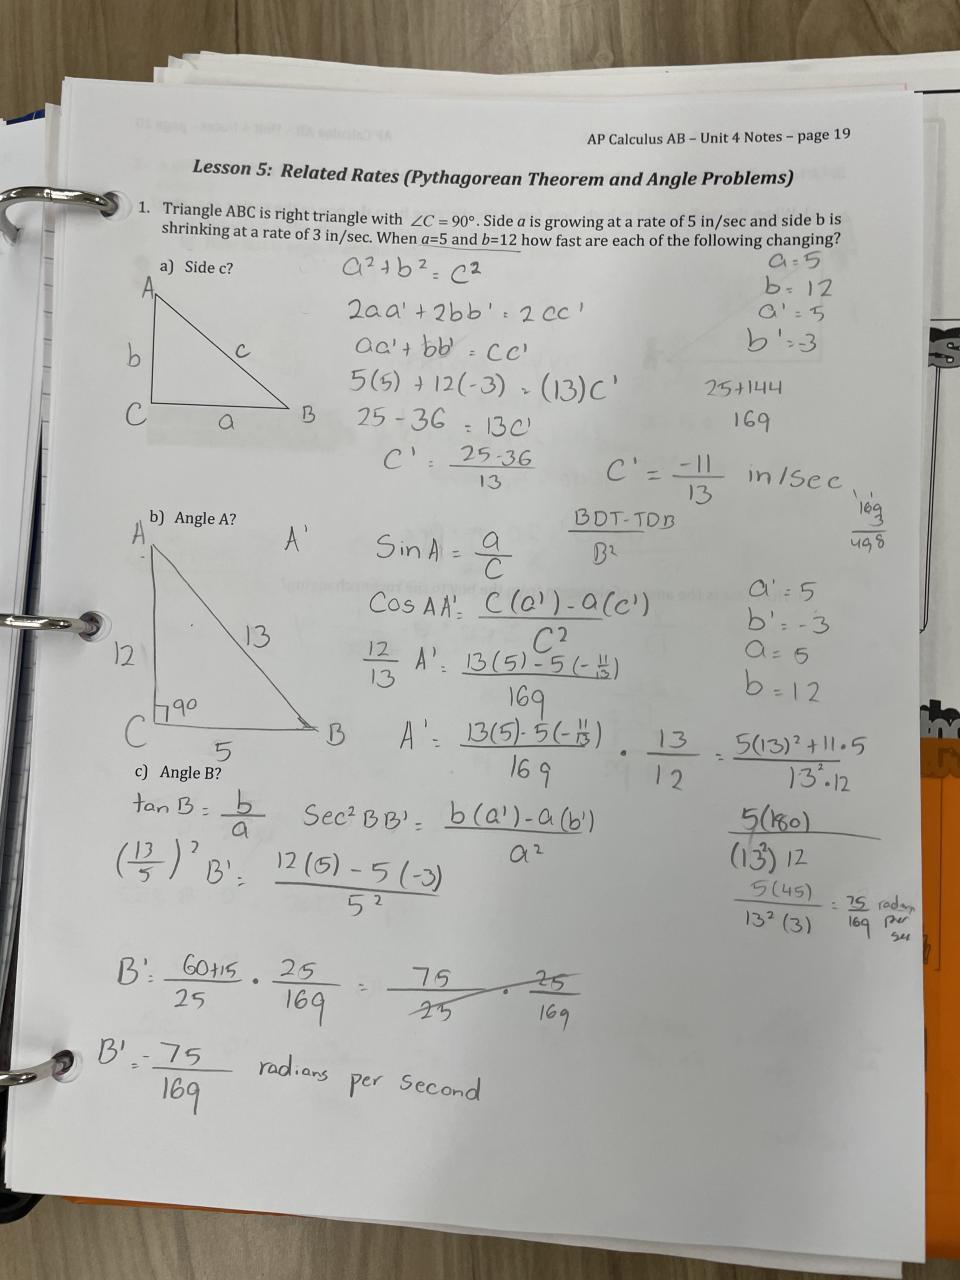 AP Calculus AB – Unit 4 Notes – page 19
Lesson 5: Related Rates (Pythagorean Theorem and Angle Problems)
1. Triangle ABC is right triangle with ∠C = 90°. Side a is growing at a rate of 5 in/sec and side b is
shrinking at a rate of 3 in/sec. When a=5 and b=12 how fast are each of the following changing?
a) Side c?
A
b
c
C
a
B
a² + b² = c²
2aa' + 2bb' = 2cc'
aa' + bb' = cc'
5(5) + 12(-3) = (13)c'
25 - 36 = 13c'
c' = 25-36/13
a = 5
b = 12
a' = 5
b' = -3
25+144
169
c' = -11/13 in/sec
b) Angle A?
A
12
13
C
90
5
B
A'
Sin A = a/c
BDT-TDB/B²
169
3
498
Cos A A' = c(a') - a(c')/c²
12/13 A' = 13(5) - 5(-11/13)/169
A' = 13(5) - 5(-11/13)/169 · 13/12 = 5(13)² + 11·5/13²·12
a' = 5
b' = -3
a = 5
b = 12
5(180)/(13²) 12
5(45)/13²(3) = 75/169 radians per sec
c) Angle B?
tan B = b/a
Sec² B B' = b(a') - a(b')/a²
(13/5)² B' = 12(5) - 5(-3)/5²
B' = 60+15/25 · 25/169 = 75/25 · 25/169
B' = -75/169 radians per second